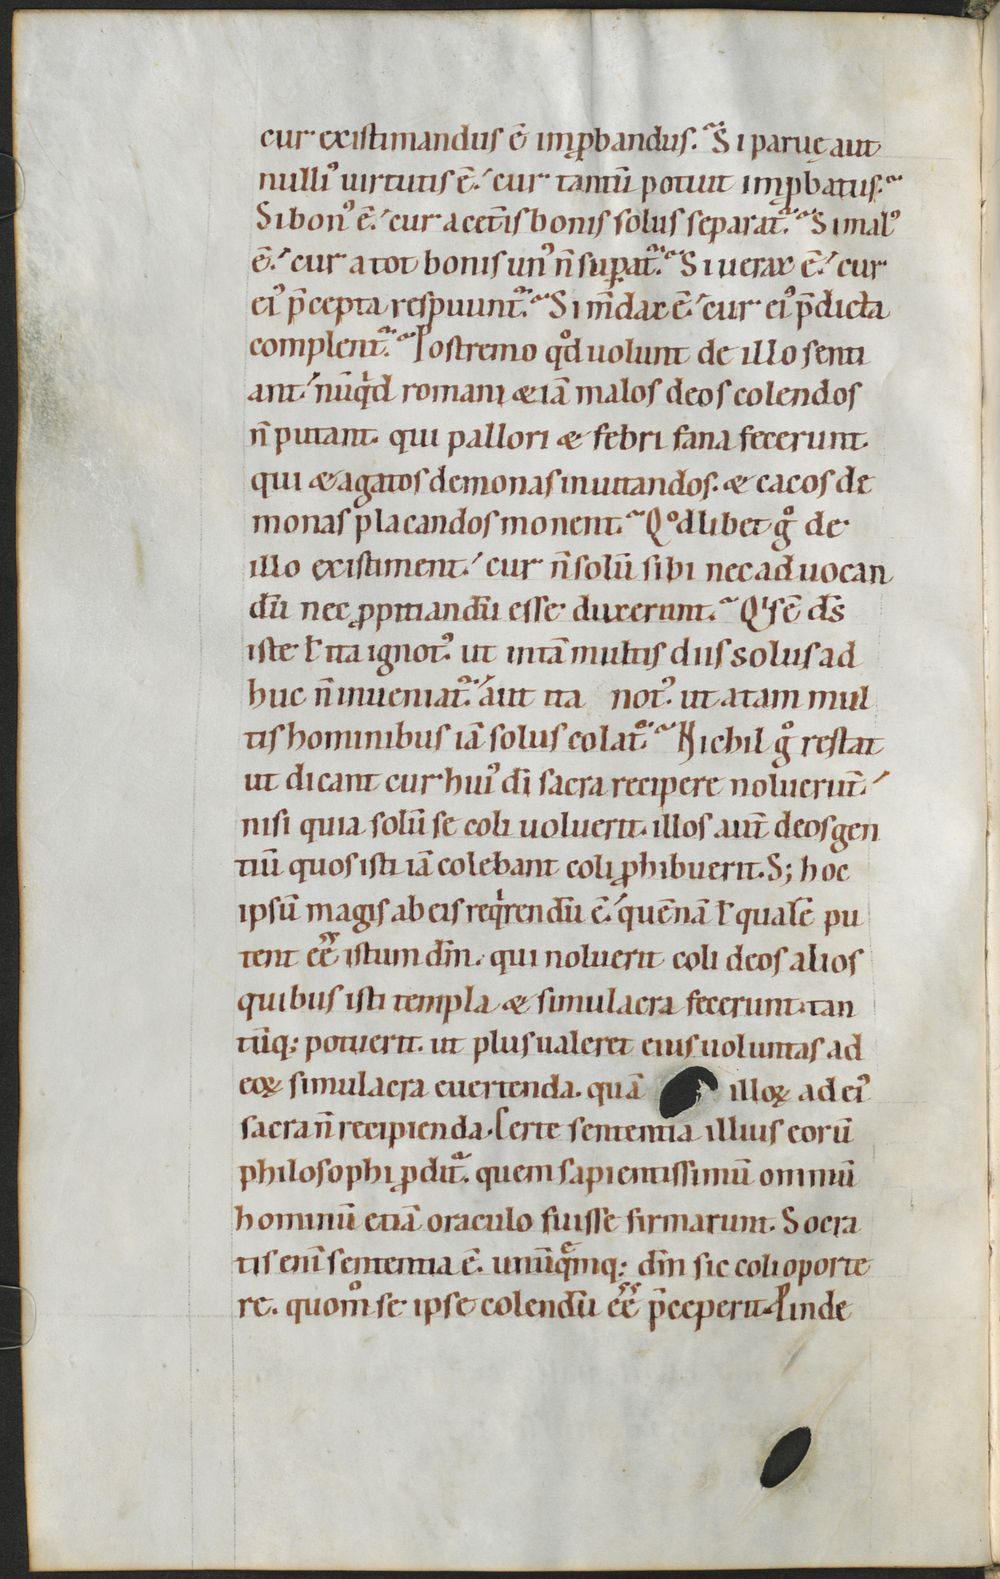 cur existimandus ē imꝓbandus. Si paruę aut
nulliꝰ uirtutis ē. cur tantū potuit imꝓbatus.
Si bonꝰ ē. cur a cet̄is bonis solus separat᷑. Si malꝰ
ē. cur a tot bonis unꝰ n̄ suꝑat᷑. Si uerax ē. cur
eiꝰ p̄cepta respuunt᷑. Si m̄dax ē. cur eiꝰ p̄dicta
complent᷑. Postremo qͦd uolunt de illo senti
ant. nūqͥd romani & iā malos deos colendos
n̄ putant. qui pallori & febri fana fecerunt.
qui & agatos demonas inuitandos. & cacos de
monas placandos monent. Qͦdlibet gͦ de
illo existiment. cur n̄ solū sibi nec aduocan
dū nec ꝓpitiandū esse duxerunt. Qͥs ē d̄s
iste ł ita ignotꝰ ut int̄ tā multis diis solus ad
huc n̄ inueniat᷑. aut ita notꝰ ut a tam mul
tis hominibus iā solus colat᷑. Nichil gͦ restat
ut dicant cur huiꝰ dī sacra recipere noluerūt.
nisi quia solū se coli uoluerit. illos aut̄ deos gen
tiū quos isti iā colebant coli ꝓhibuerit. S; hoc
ipsū magis ab eis reqͥrendū ē. quēnā ł qualē pu
tent ee̅ istum dm̄. qui noluerit coli deos alios
quibus isti templa & simulacra fecerunt. tan
tūq; potuerit. ut plus ualeret eius uoluntas ad
eoꝝ simulacra euertenda. quā illoꝝ ad eiꝰ
sacra n̄ recipienda. Certe sententia illius eorū
philosophi ꝓdit᷑. quem sapientissimū omniū
hominū etiā oraculo fuisse firmarunt. Socra
tis eni̅ sententia ē. unūqͣēmq; dm̄ sic coli oporte
re. quomͦ se ipse colendū ee̅ p̄ceperit. Proinde